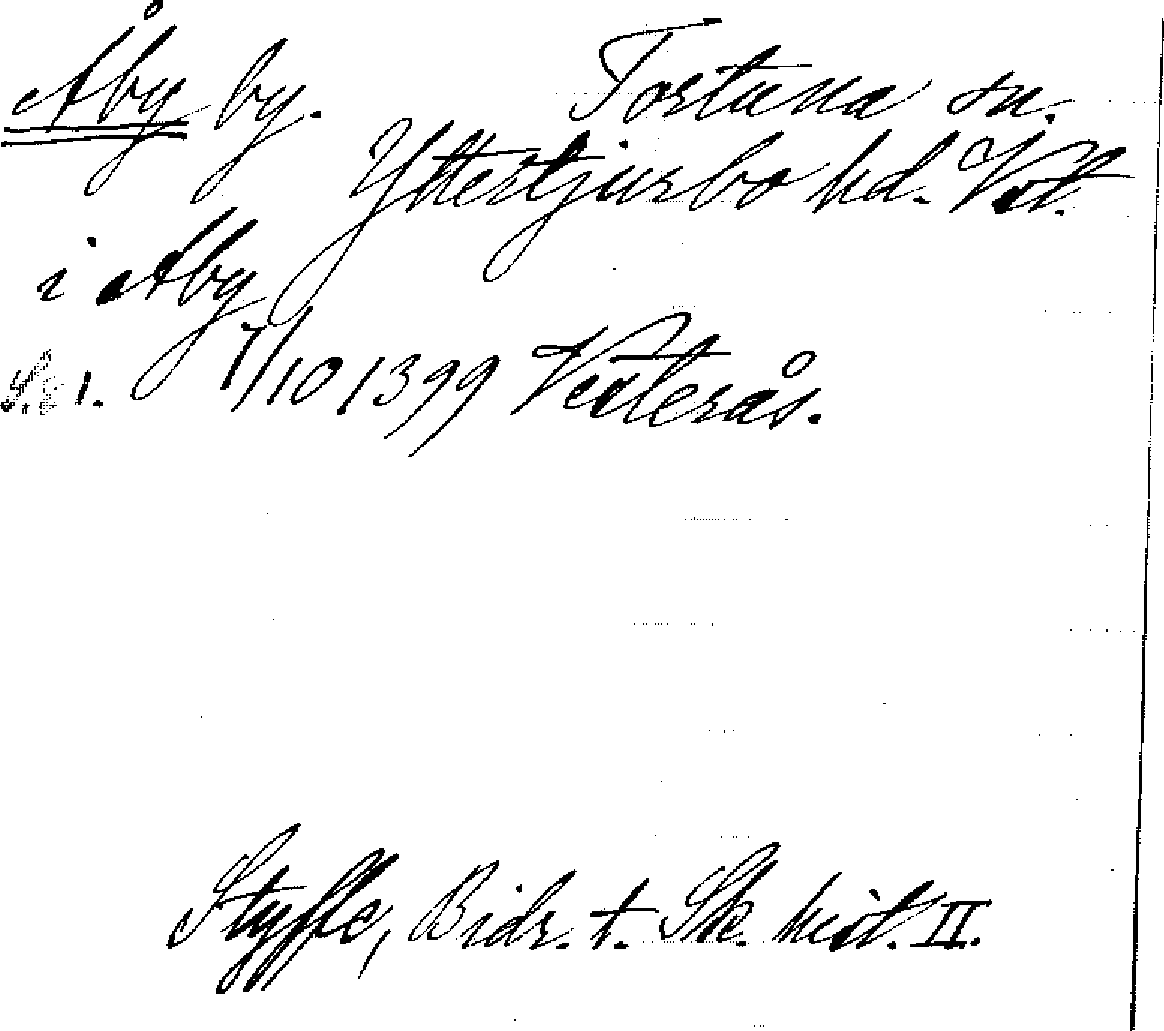 Åby by. Tortuna sn.
Yttertjurbo hd. Vst.
i Aby
s. 1. 7/10 1399 Vesterås.
Styffe, Bidr. t. Sk. hist. II.